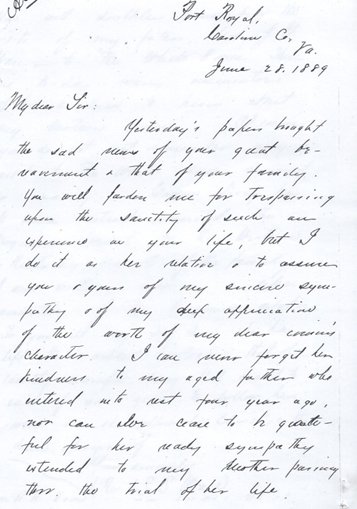 Port Royal,
Caroline Co,
Va.
June 28. 1889
My dear Sir:
Yesterday's papers brought
the sad news of your great be-
reavement & that of your family.
You will pardon me for trespassing
upon the sanctity of such an
experience in your life, but I
do it as her relative & to assure
you & yours of my sincere sym-
pathy & of my deep appreciation
of the worth of my dear cousin's
character. I can never forget her
kindness to my aged father who
entered into rest four years ago,
nor can I ever cease to be grate-
ful for her ready sympathy
extended to my Mother passing
thro. the trial of her life.